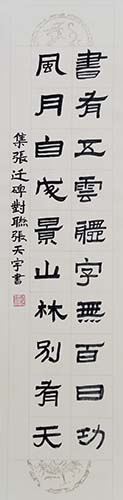 書有五雲體字無百日功
風月自成景山林別有天
集張迁碑對聯張天宇書